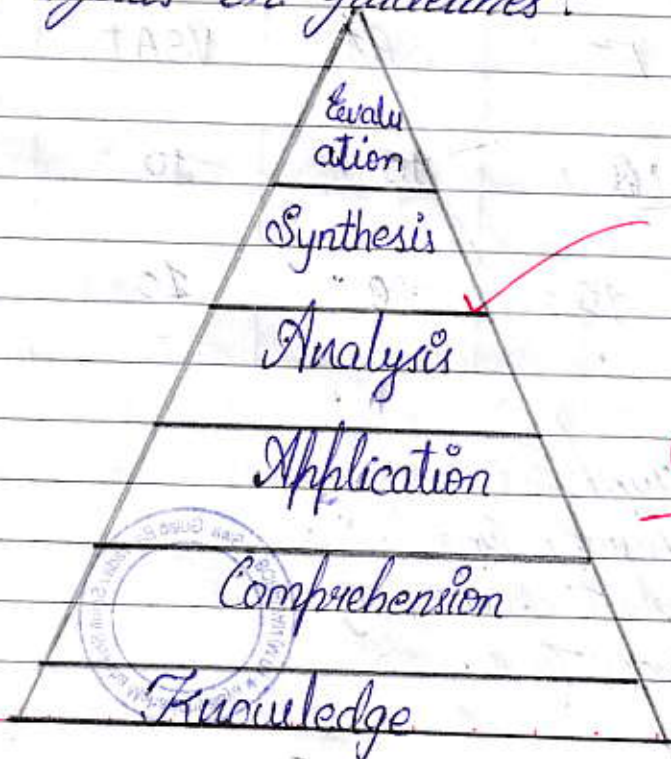 on guidelines.
Evalu
ation
Synthesis
Analysis
Application
Comprehension
Knowledge